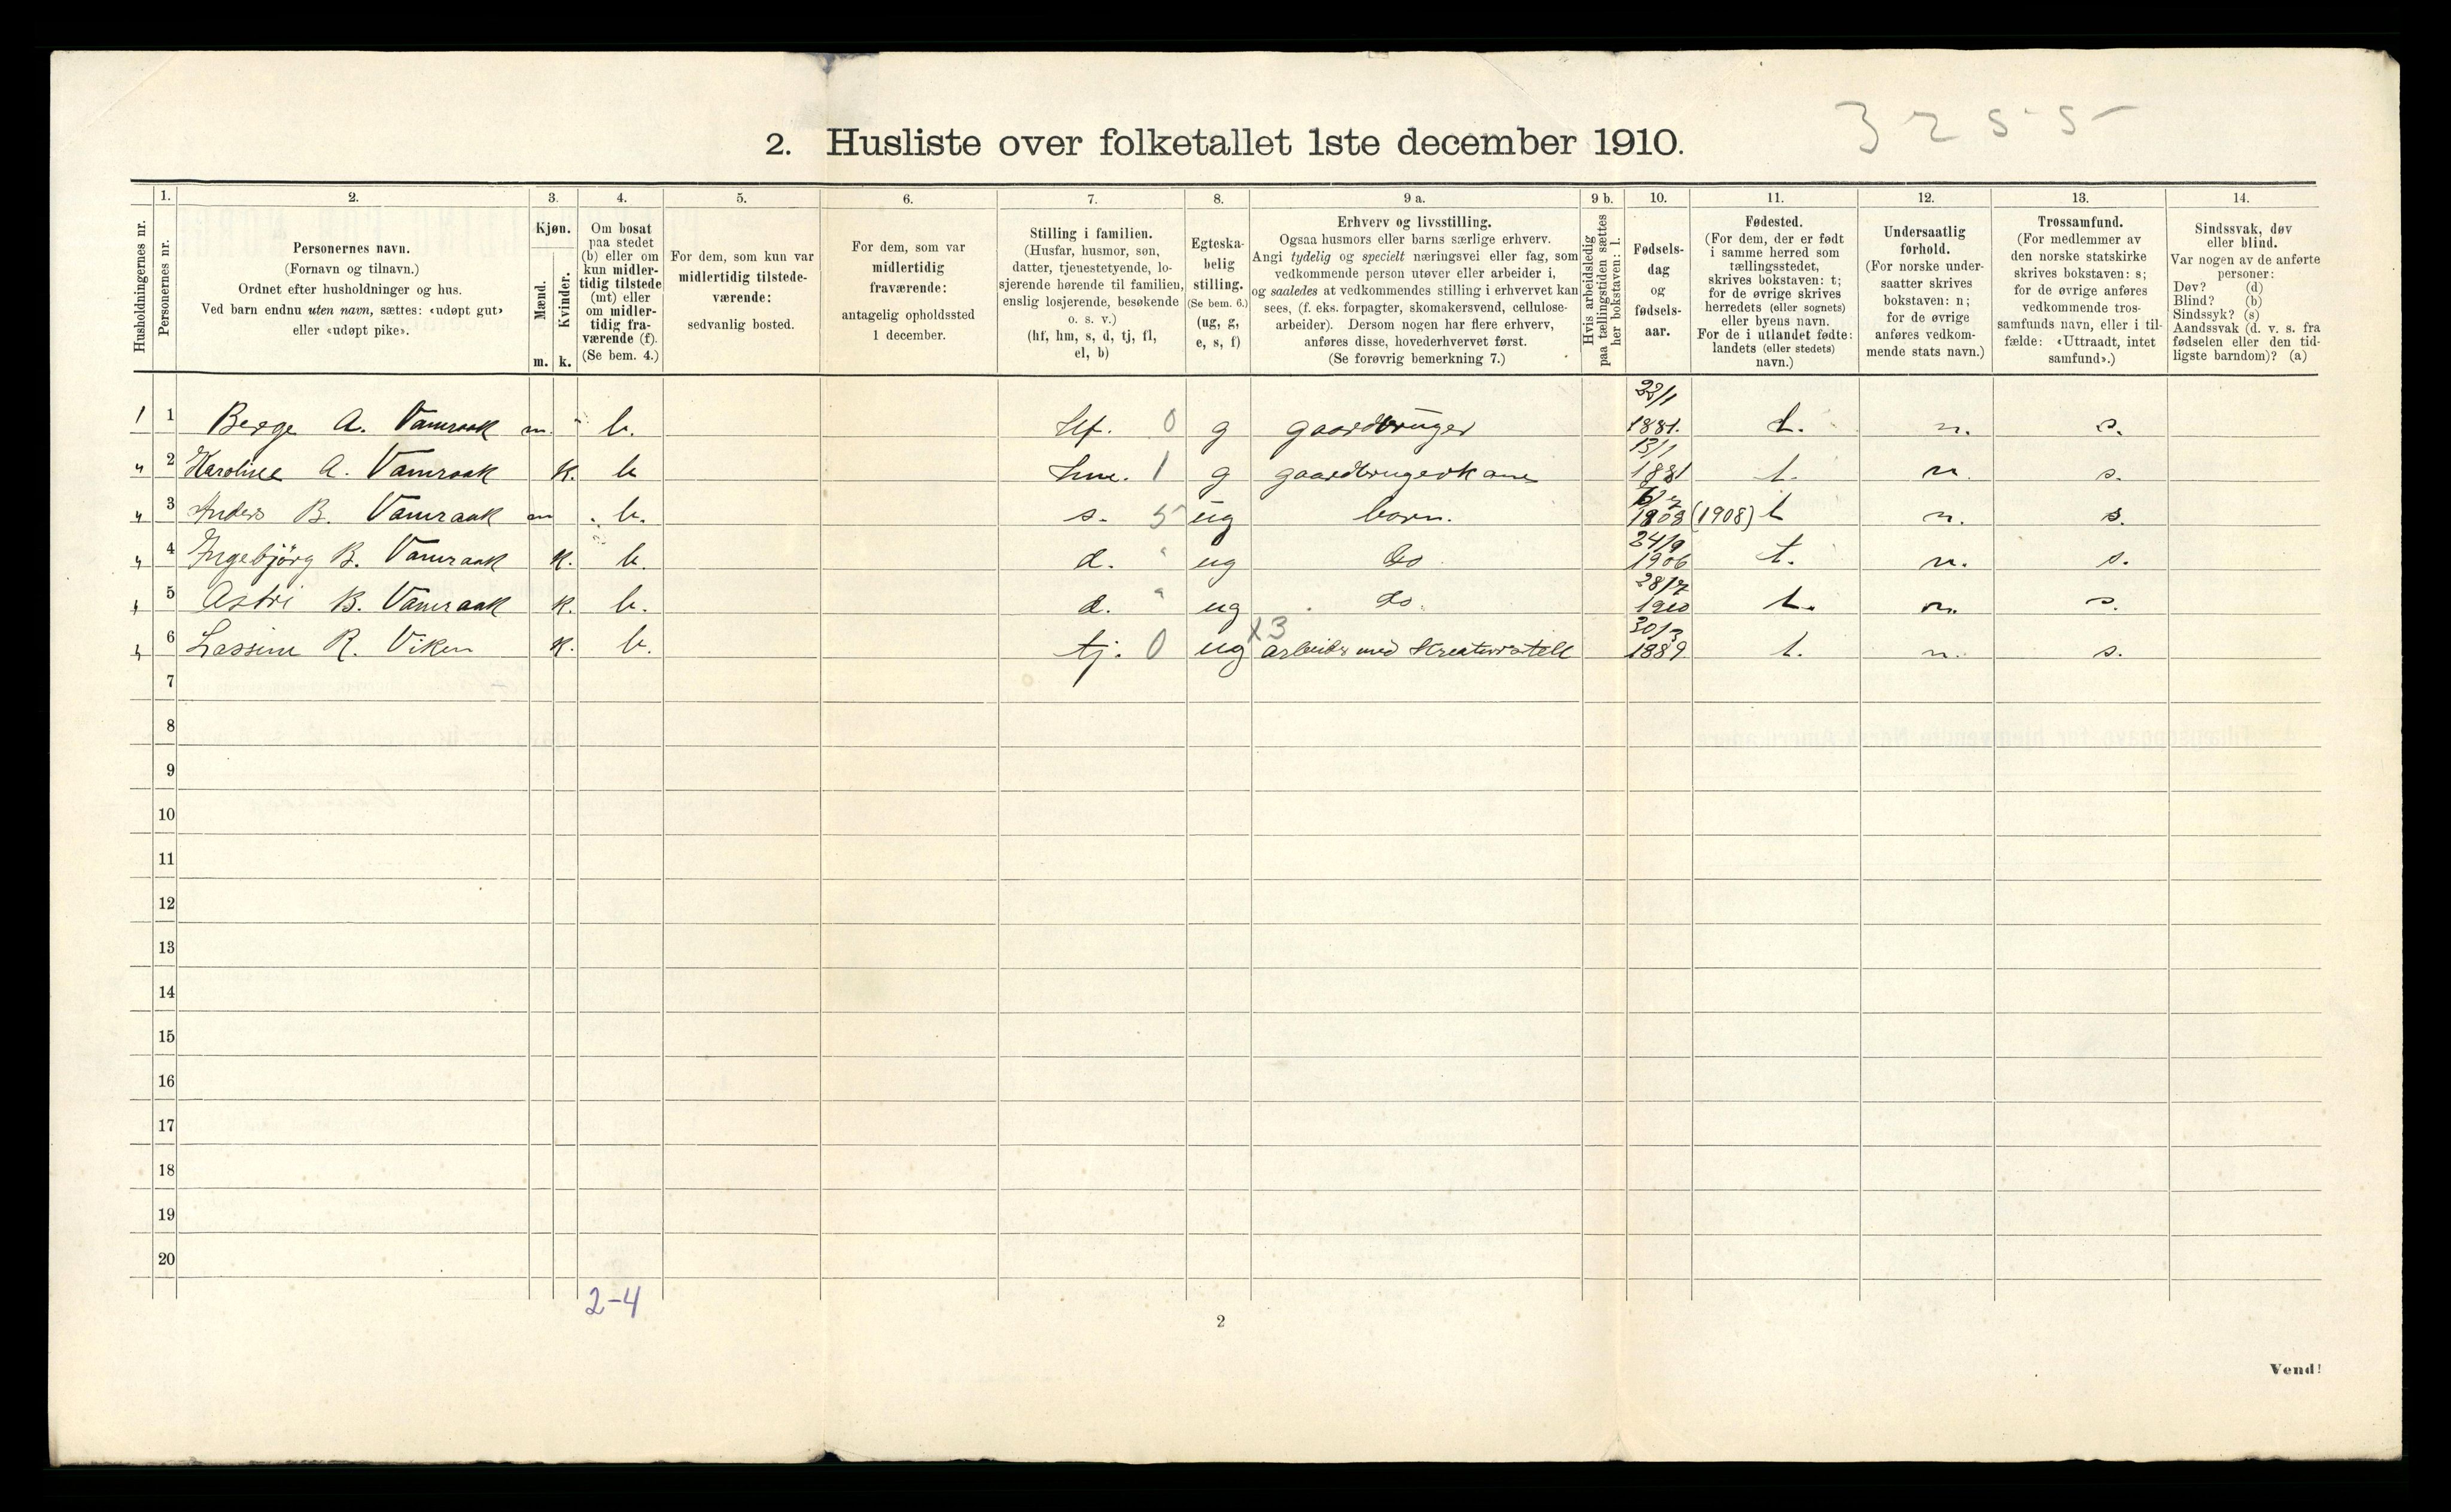 3255
2. Husliste over folketallet 1ste december 1910.
Husholdningernes nr.
1. Personernes nr.
2. Personernes navn.
(Fornavn og tilnavn.)
Ordnet efter husholdninger og hus.
Ved barn endnu uten navn, sættes: «udøpt gut»
eller «udøpt pike».
3. Kjøn.
Mænd. m.
Kvinder. k.
4. Om bosat
paa stedet
(b) eller om
kun midler-
tidig tilstede
(mt) eller
om midler-
tidig fra-
værende (f).
(Se bem. 4.)
5. For dem, som kun var
midlertidig tilstede-
værende:
sedvanlig bosted.
6. For dem, som var
midlertidig
fraværende:
antagelig opholdssted
1 december.
7. Stilling i familien.
(Husfar, husmor, søn,
datter, tjenestetyende, lo-
sjerende hørende til familien,
enslig losjerende, besøkende
o. s. v.)
(hf, hm, s, d, tj, fl,
el, b)
8. Egteska-
belig
stilling.
(Se bem. 6.)
(ug, g,
e, s, f)
9 a. Erhverv og livsstilling.
Ogsaa husmors eller barns særlige erhverv.
Angi tydelig og specielt næringsvei eller fag, som
vedkommende person utøver eller arbeider i,
og saaledes at vedkommendes stilling i erhvervet kan
sees, (f. eks. forpagter, skomakersvend, cellulose-
arbeider). Dersom nogen har flere erhverv,
anføres disse, hovederhvervet først.
(Se forøvrig bemerkning 7.)
9 b. Hvis arbeidsledig
paa tællingstiden sættes
her bokstaven: l.
10. Fødsels-
dag
og
fødsels-
aar.
11. Fødested.
(For dem, der er født
i samme herred som
tællingsstedet,
skrives bokstaven: t;
for de øvrige skrives
herredets (eller sognets)
eller byens navn.
For de i utlandet fødte:
landets (eller stedets)
navn.)
12. Undersaatlig
forhold.
(For norske under-
saatter skrives
bokstaven: n;
for de øvrige
anføres vedkom-
mende stats navn.)
13. Trossamfund.
(For medlemmer av
den norske statskirke
skrives bokstaven: s;
for de øvrige anføres
vedkommende tros-
samfunds navn, eller i til-
fælde: «Uttraadt, intet
samfund».)
14. Sindssvak, døv
eller blind.
Var nogen av de anførte
personer:
Døv? (d)
Blind? (b)
Sindssyk? (s)
Aandssvak (d. v. s. fra
fødselen eller den tid-
ligste barndom)? (a)
1 1 Berge A. Vamraak m. b. hf. 0 g gaardbruger 1881. t. n. s.
" 2 Karoline A. Vamraak k. b hm. 1 g gaardbrugerkone 13/1 1881 t. n. s.
" 3 Anders B. Vamraak m b. s. 5 ug barn. 1908 (1908) t n. s.
" 4 Ingebjörg B. Vamraak k. b. d. " ug do 24/9 1906 t. n. s.
" 5 Astri B. Vamraak k. b. d. " ug do. 1910 t. n. s.
" 6 Lassine R. Viken k. b. tj. 0 ug x3 arbeider med Kreaturstell 30/3 1889 t. n. s.
7
8
9
10
11
12
13
14
15
16
17
18
19
20
2-4
2
Vend!